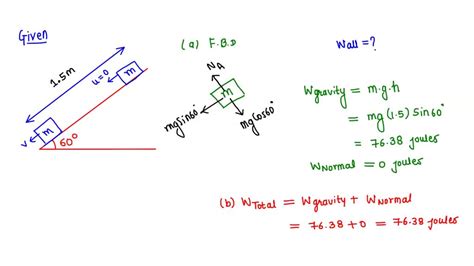 Given
1.5m
u=0
m
v
m
60°
(a) F.B.D
N_A
m
mgsin60°
mgcos60°
Wall = ?
Wgravity = m.g.h
= mg(1.5) Sin60°
= 76.38 joules
WNormal = 0 joules
(b) WTotal = Wgravity + WNormal
= 76.38 + 0 = 76.38 joules